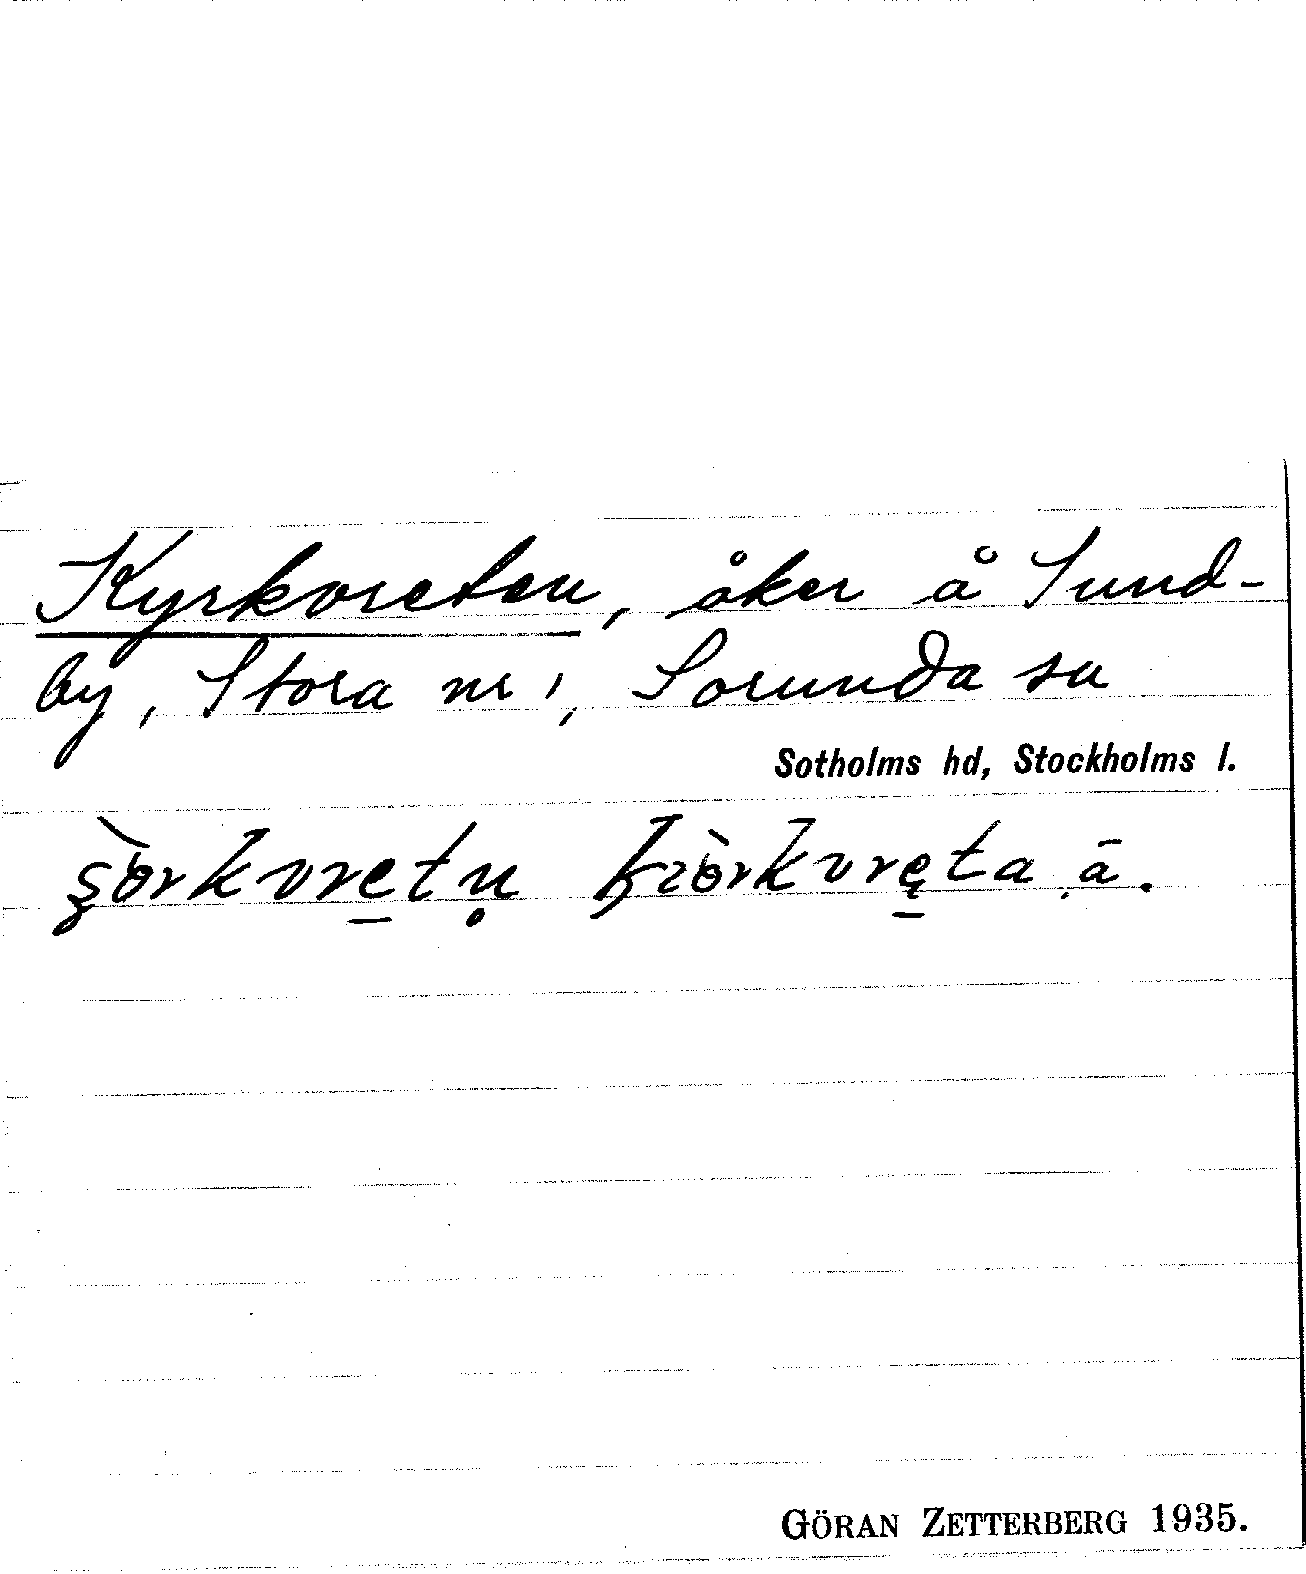 Kyrkvreten, åker å Sund-
by, Stora nr 1, Sorunda sn
Sotholms hd, Stockholms l.
GÖRAN ZETTERBERG 1935.